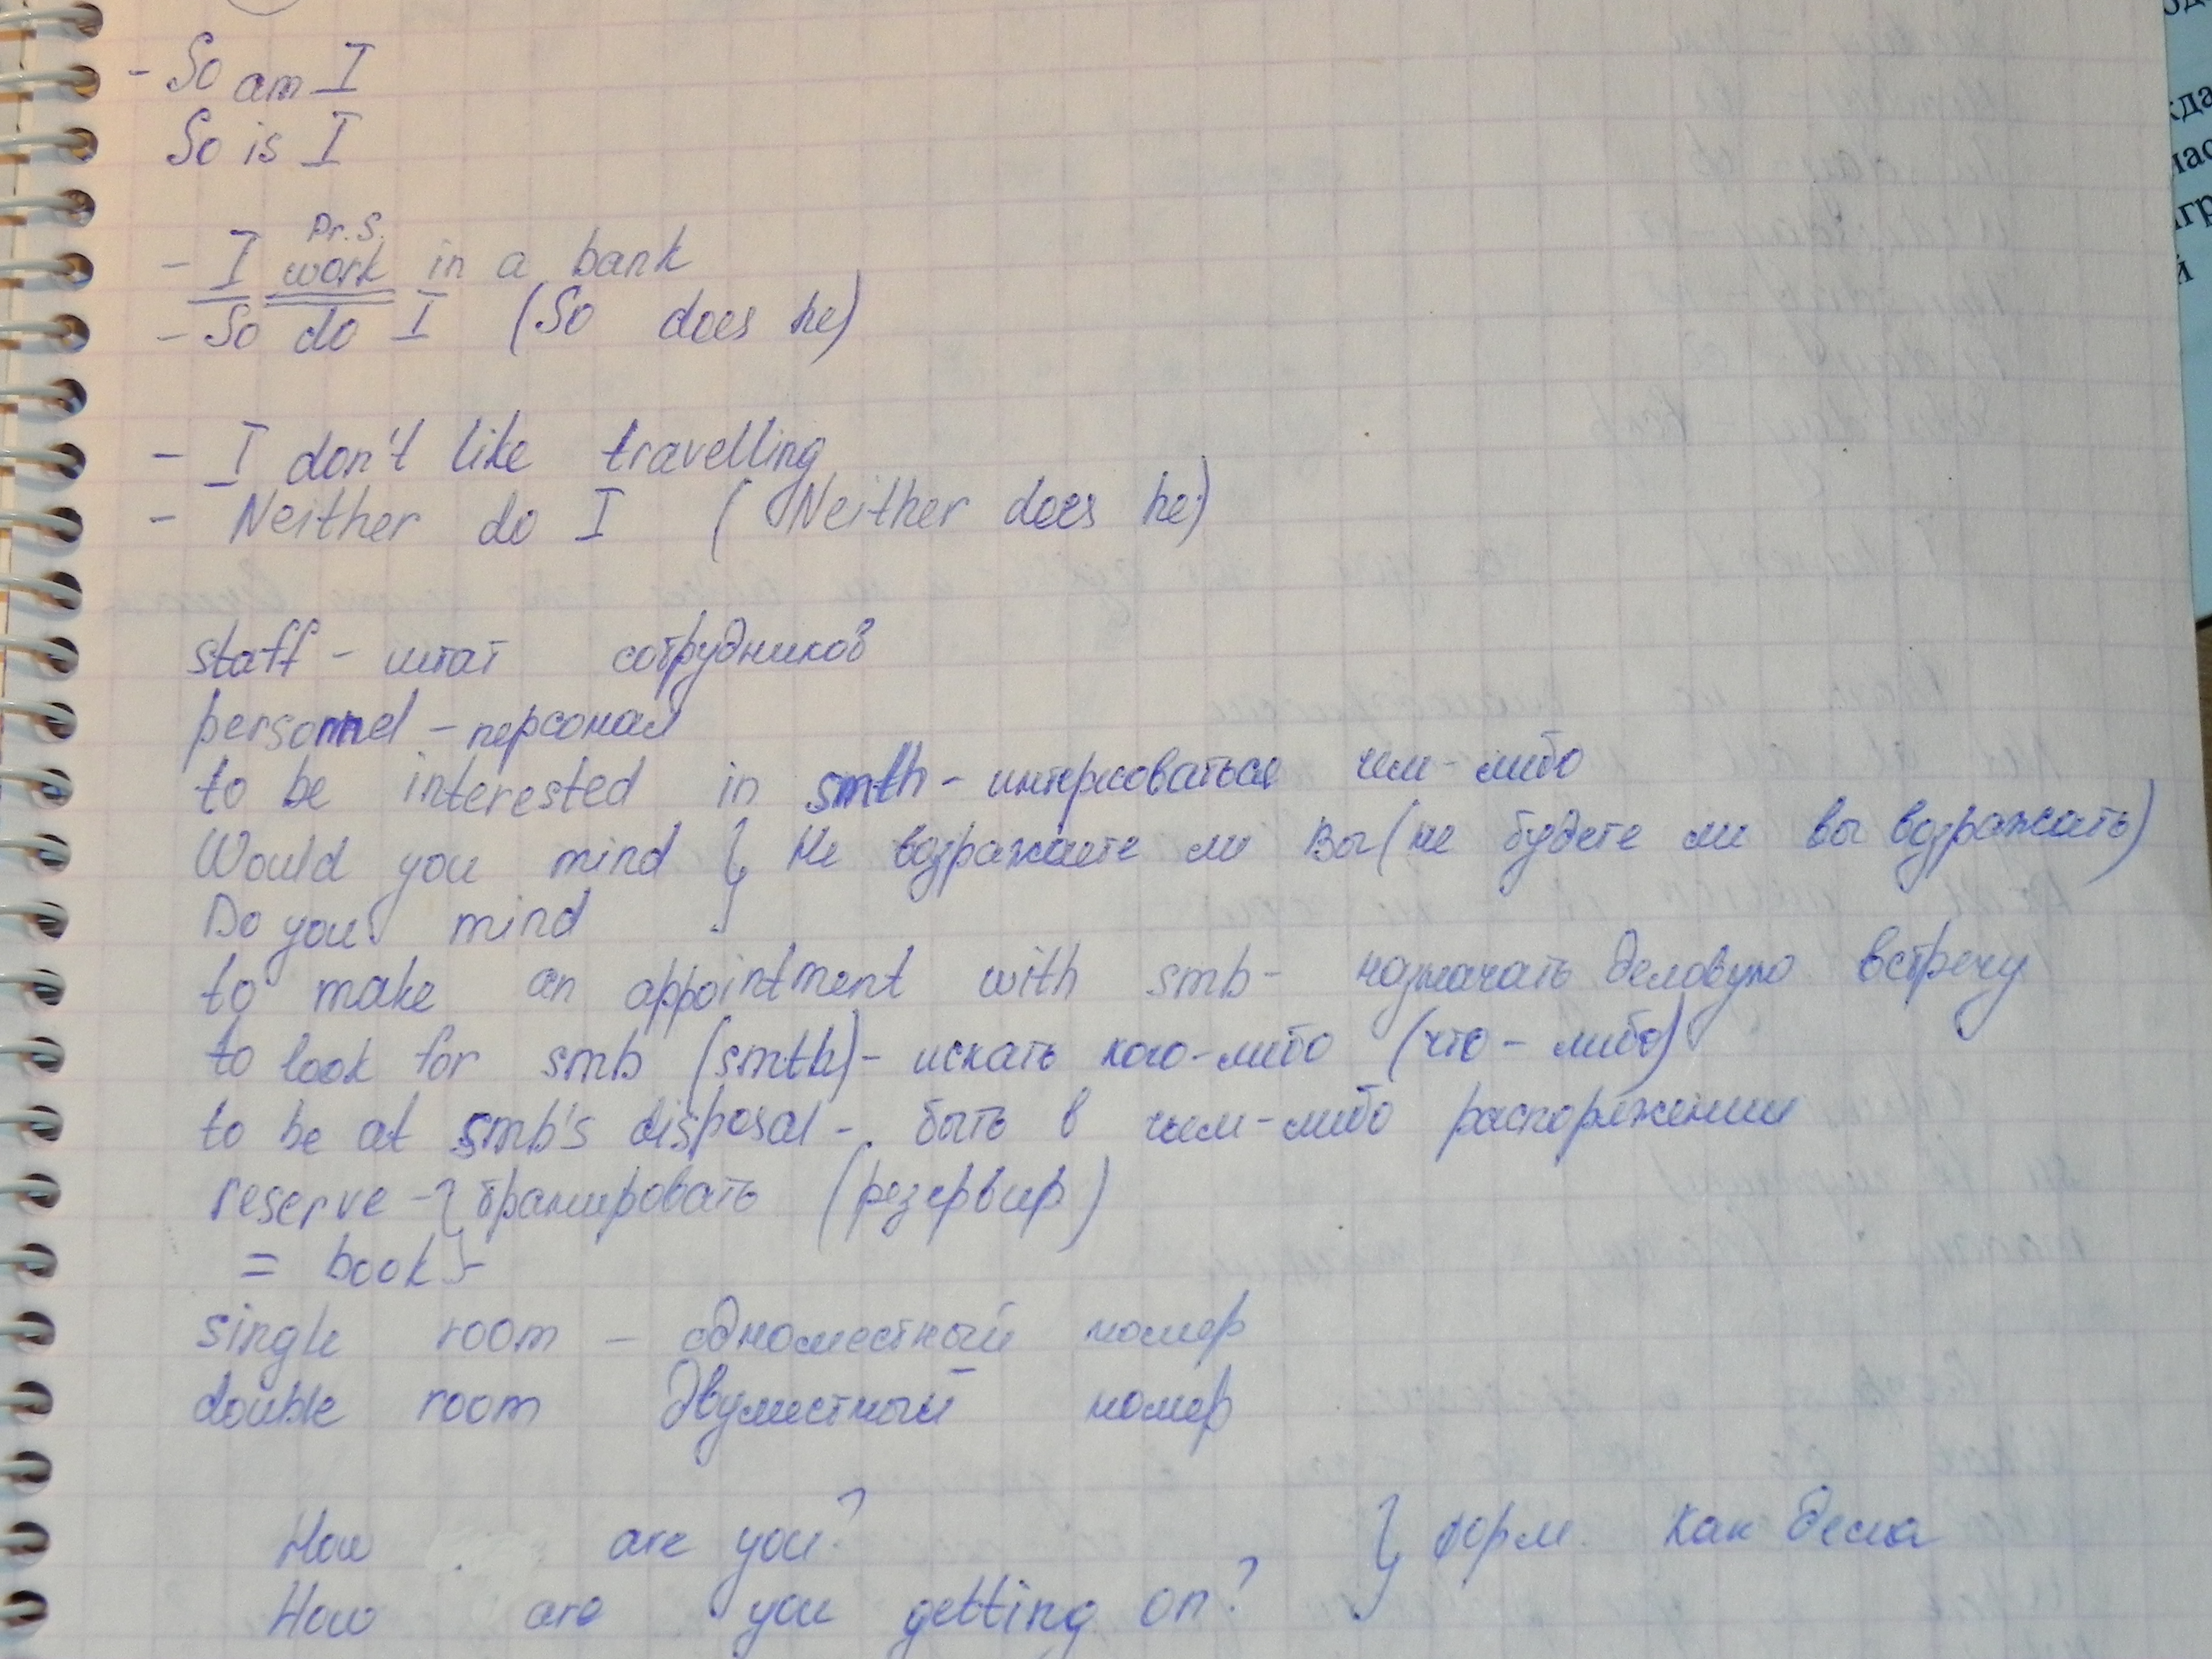 - So am I
So is I
Pr. S.
- I work in a bank
- So do I (So does he)
- I don't like travelling
- Neither do I (Neither does he)
staff - штат сотрудников
personnel - персонал
to be interested in smth - интересоваться чем-либо
Would you mind } Не возражаете ли Вы (не будете ли вы возражать)
Do you mind }
to make an appointment with smb - назначать деловую встречу
to look for smb (smth) - искать кого-либо (что-либо)
to be at smb's disposal - быть в чьем-либо распоряжении
reserve - } бранировать (резервир)
= book } -
single room - одноместный номер
double room двуместный номер
How are you? } форм. как дела
How are you getting on?